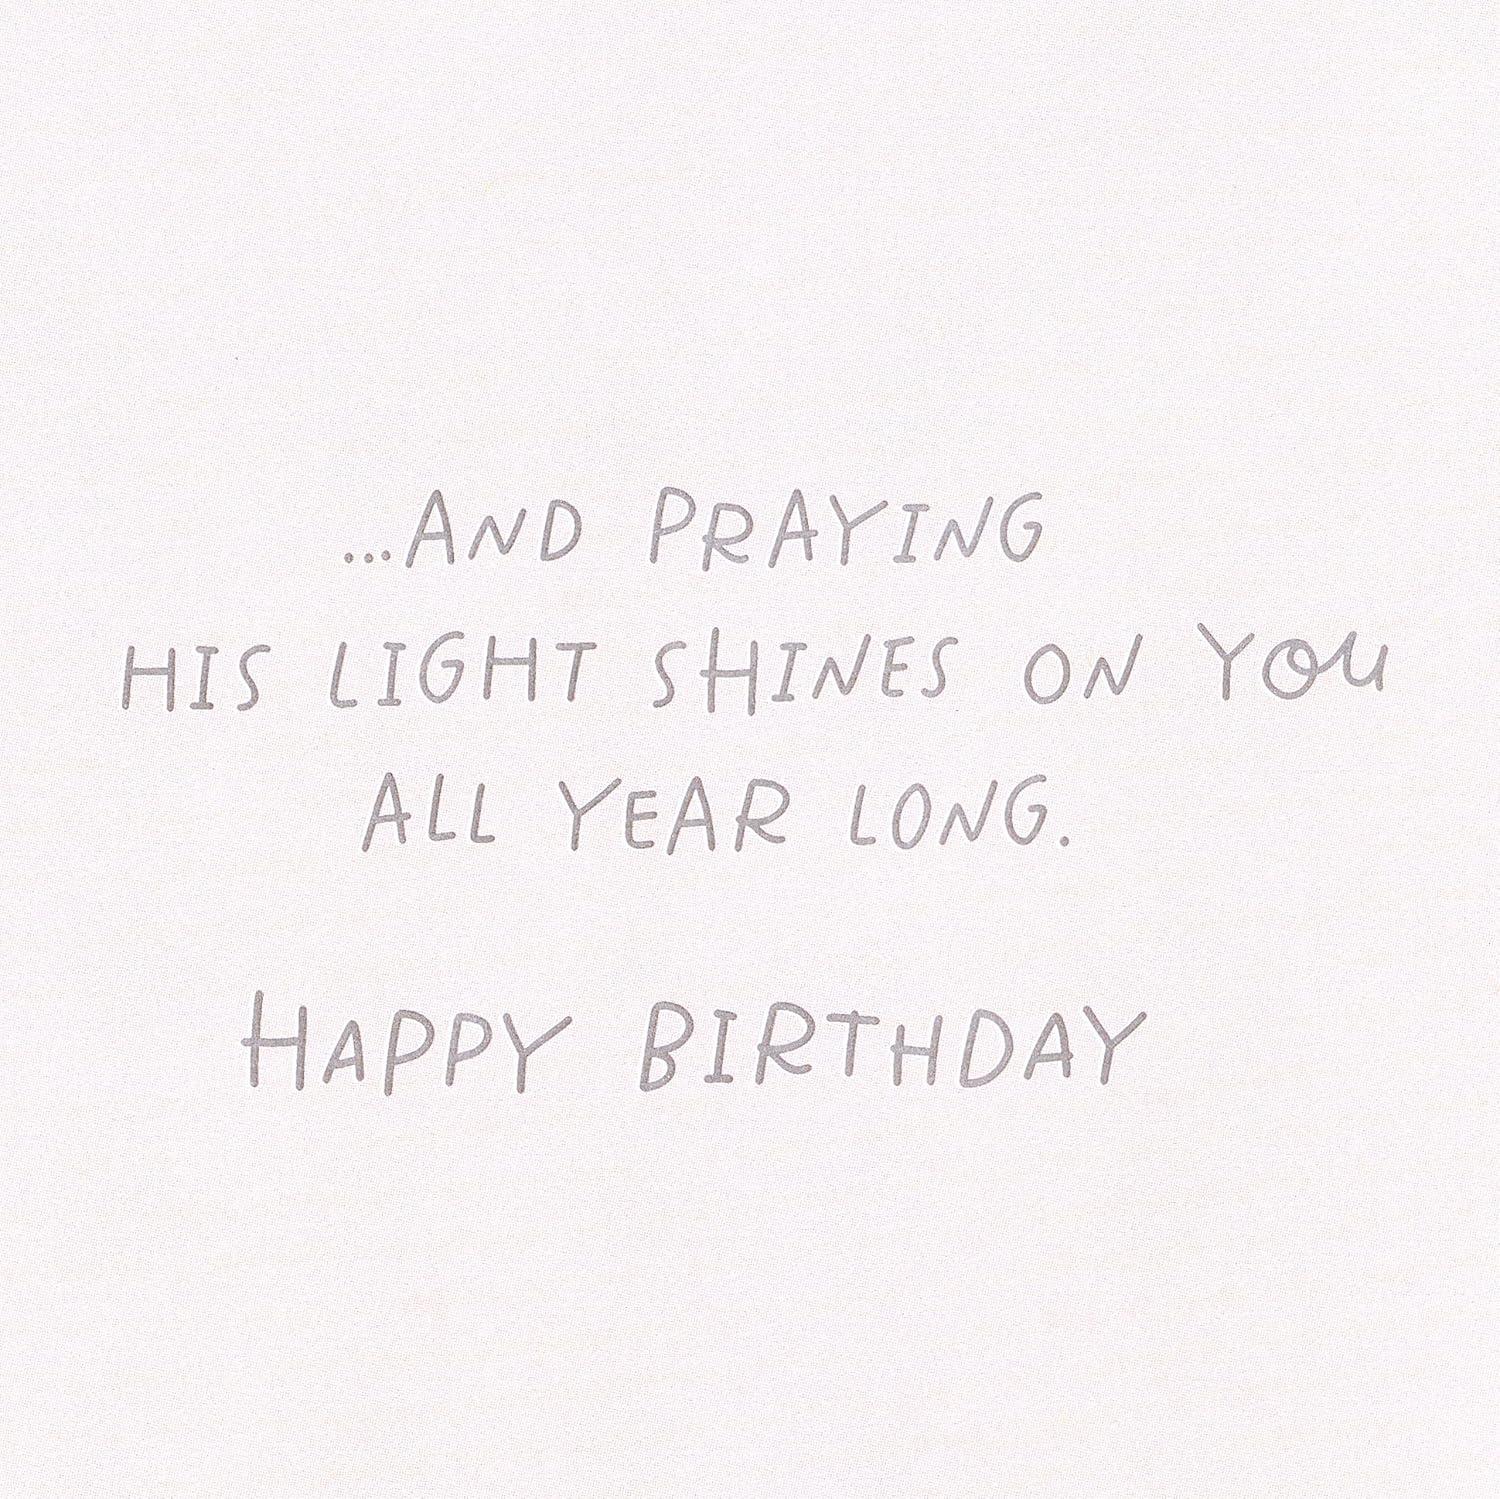 ...AND PRAYING
HIS LIGHT SHINES ON YOU
ALL YEAR LONG.
HAPPY BIRTHDAY